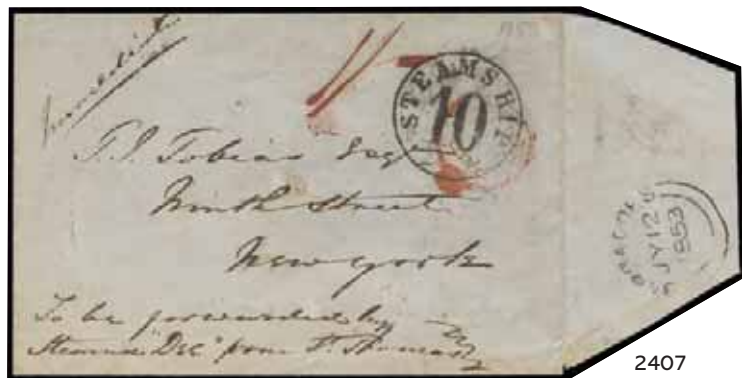 1853
STEAMSHIP
10
T. I. Tobias Esqr
Ninth Street
New York
To be forwarded by
Steamer "Dee" from St. Thomas
JY 12
1853
2407